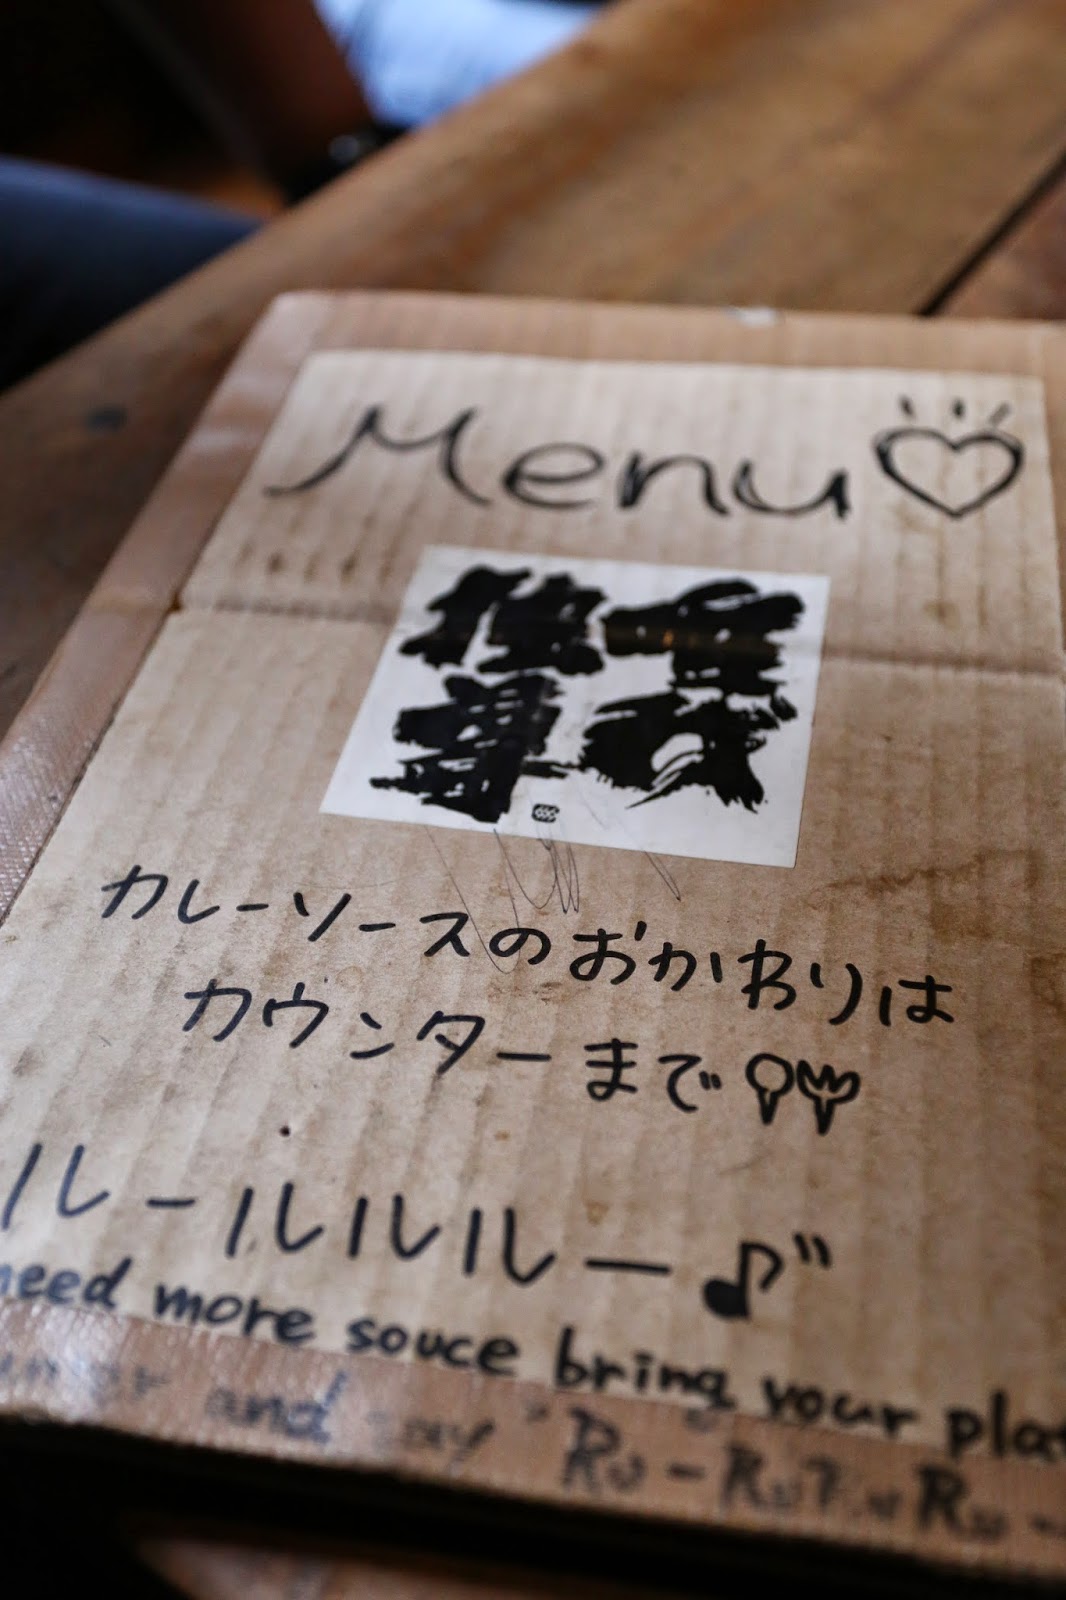 Menu
カレーソースのおかわりは
カウンターまで
ルールルルー♪
need more souce bring your plat
and say "Ru-RuRuRu-